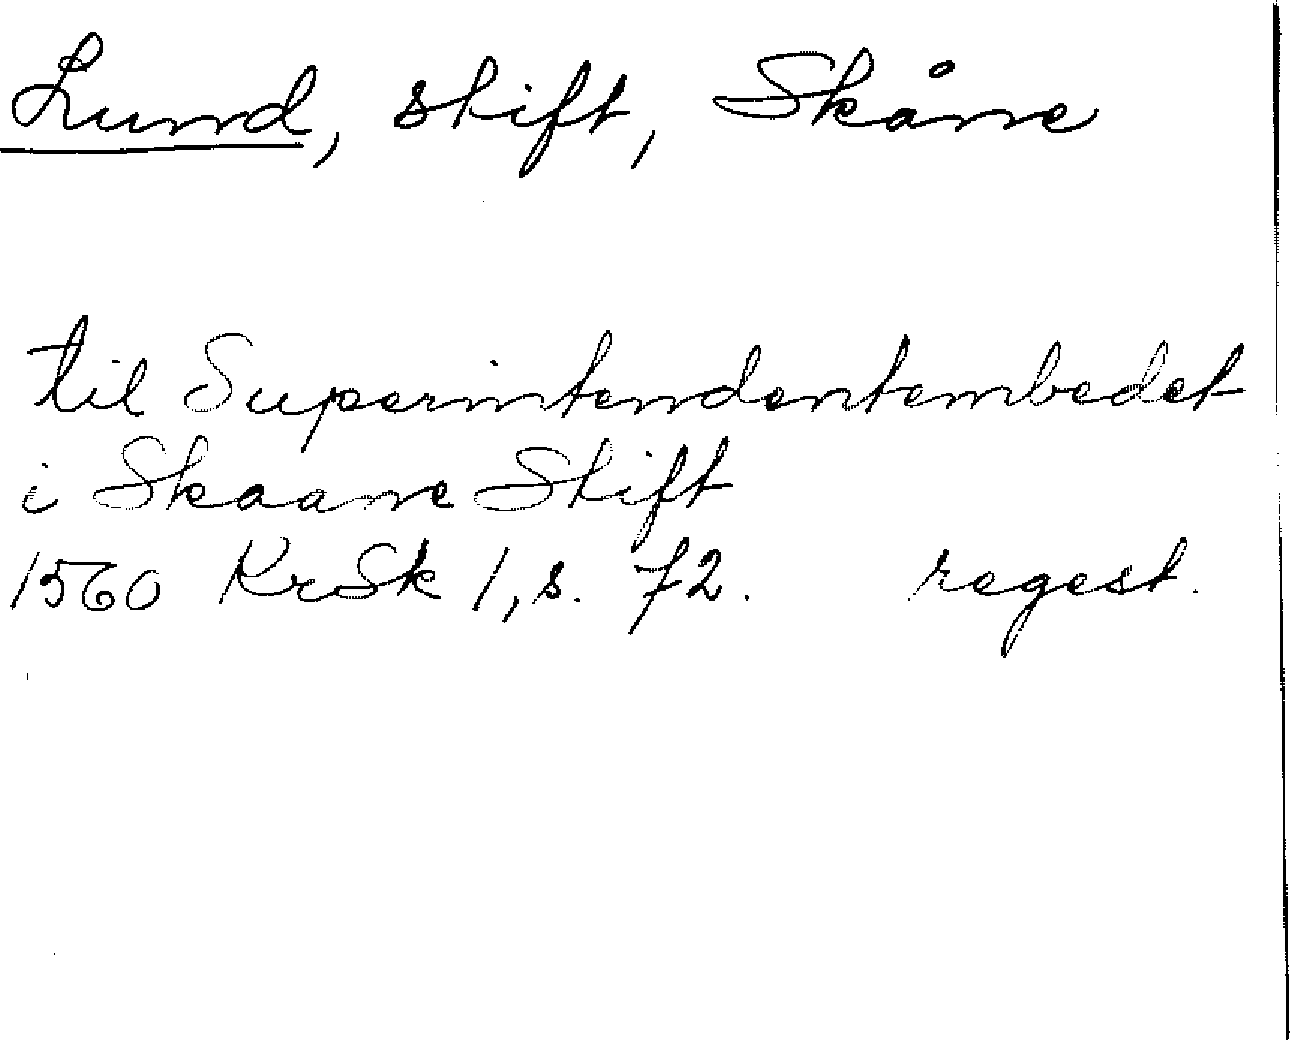 Lund, stift, Skåne
til Superintendentembedet
i Skaane Stift
1560 KrSk 1, s. 72. regest.